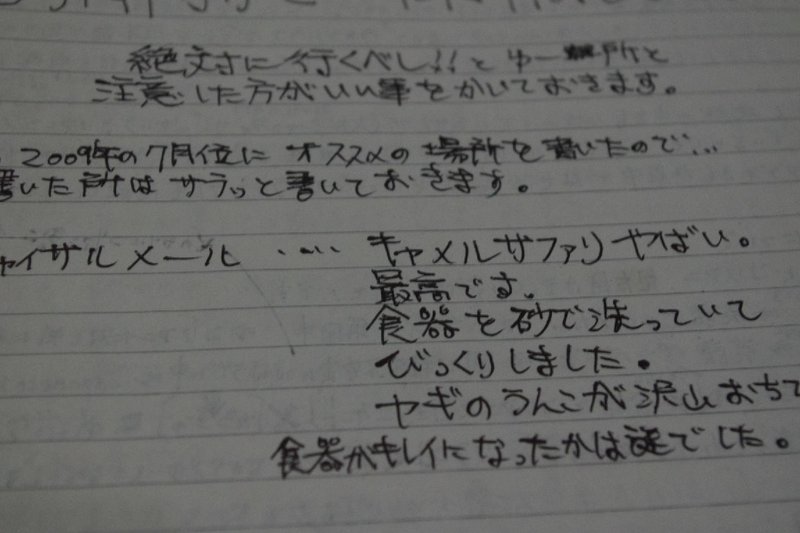 絶対に行くべし!!とゆー 所と
注意した方がいい事をかいておきます。
2009年の7月位に オススメの 場所を書いたので...
書いた所は サラッと書いておきます。
ャイサルメール .... キャメルサファリ やばい。
最高です。
食器を砂で洗っていて
びっくりしました。
ヤギのうんこが沢山おちて
食器がキレイになったかは謎でした。